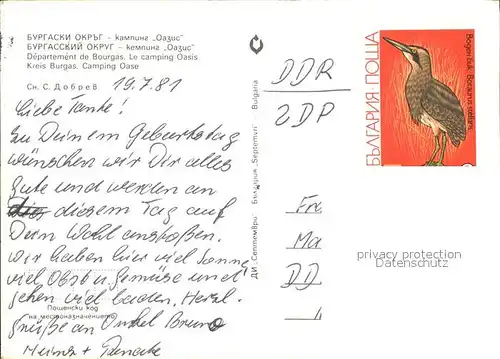 БУРГАСКИ ОКРЪГ - къмпинг „Оазис"
БУРГАССКИЙ ОКРУГ - кемпинг „Оазис"
Département de Bourgas. Le camping Oasis
Kreis Burgas. Camping Oase
Сн. С. Добрев
19.7.81
Liebe Tante!
Zu Deinem Geburtstag
wünschen wir Dir alles
Gute und werden an
diesem Tag auf
Dein Wohl anstoßen.
Wir haben hier viel Sonne,
viel Obst u. Gemüse und
gehen viel baden. Herzl.
Grüße an Onkel Bruno
Heinz +
Пощенски код
на местоназначението
ДИ „Септември" България „Septemvri" Bulgaria
DDR
2DP
Fra
Ma
DD
БЪЛГАРИЯ ПОЩА
Воден бик Botaurus stellaris
privacy protection
AnsichtskartenVersand.com